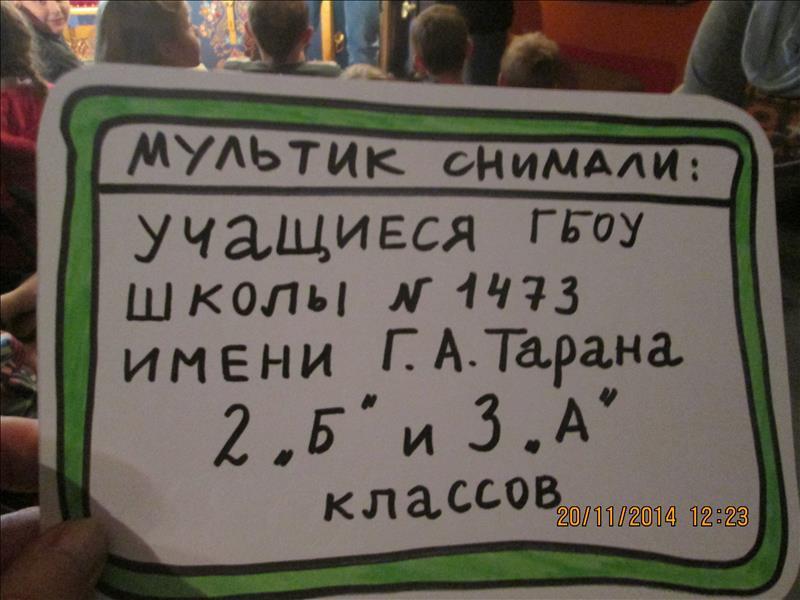 МУЛЬТИК СНИМАЛИ:
УЧАЩИЕСЯ ГБОУ
ШКОЛЫ N 1473
ИМЕНИ Г. А. Тарана
2 „Б” и 3 „А”
классов
20/11/2014 12:23